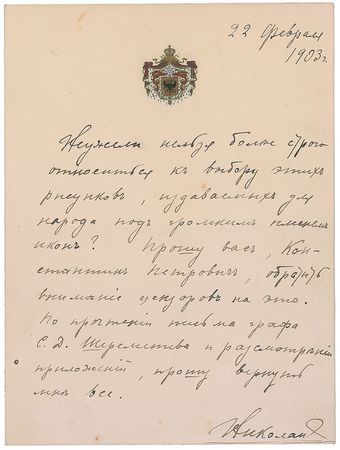 22 Февраля
1903 г.
Неужели нельзя болѣе строго
относиться къ выбору этихъ
рисунковъ, издаваемыхъ для
народа подъ громкимъ именемъ
иконъ? Прошу васъ, Кон-
стантинъ Петровичъ, обратить
вниманіе цензоровъ на это.
По прочтеніи письма графа
С. Д. Шереметева и разсмотрѣніи
приложеній, прошу вернуть
мнѣ все.
Николай